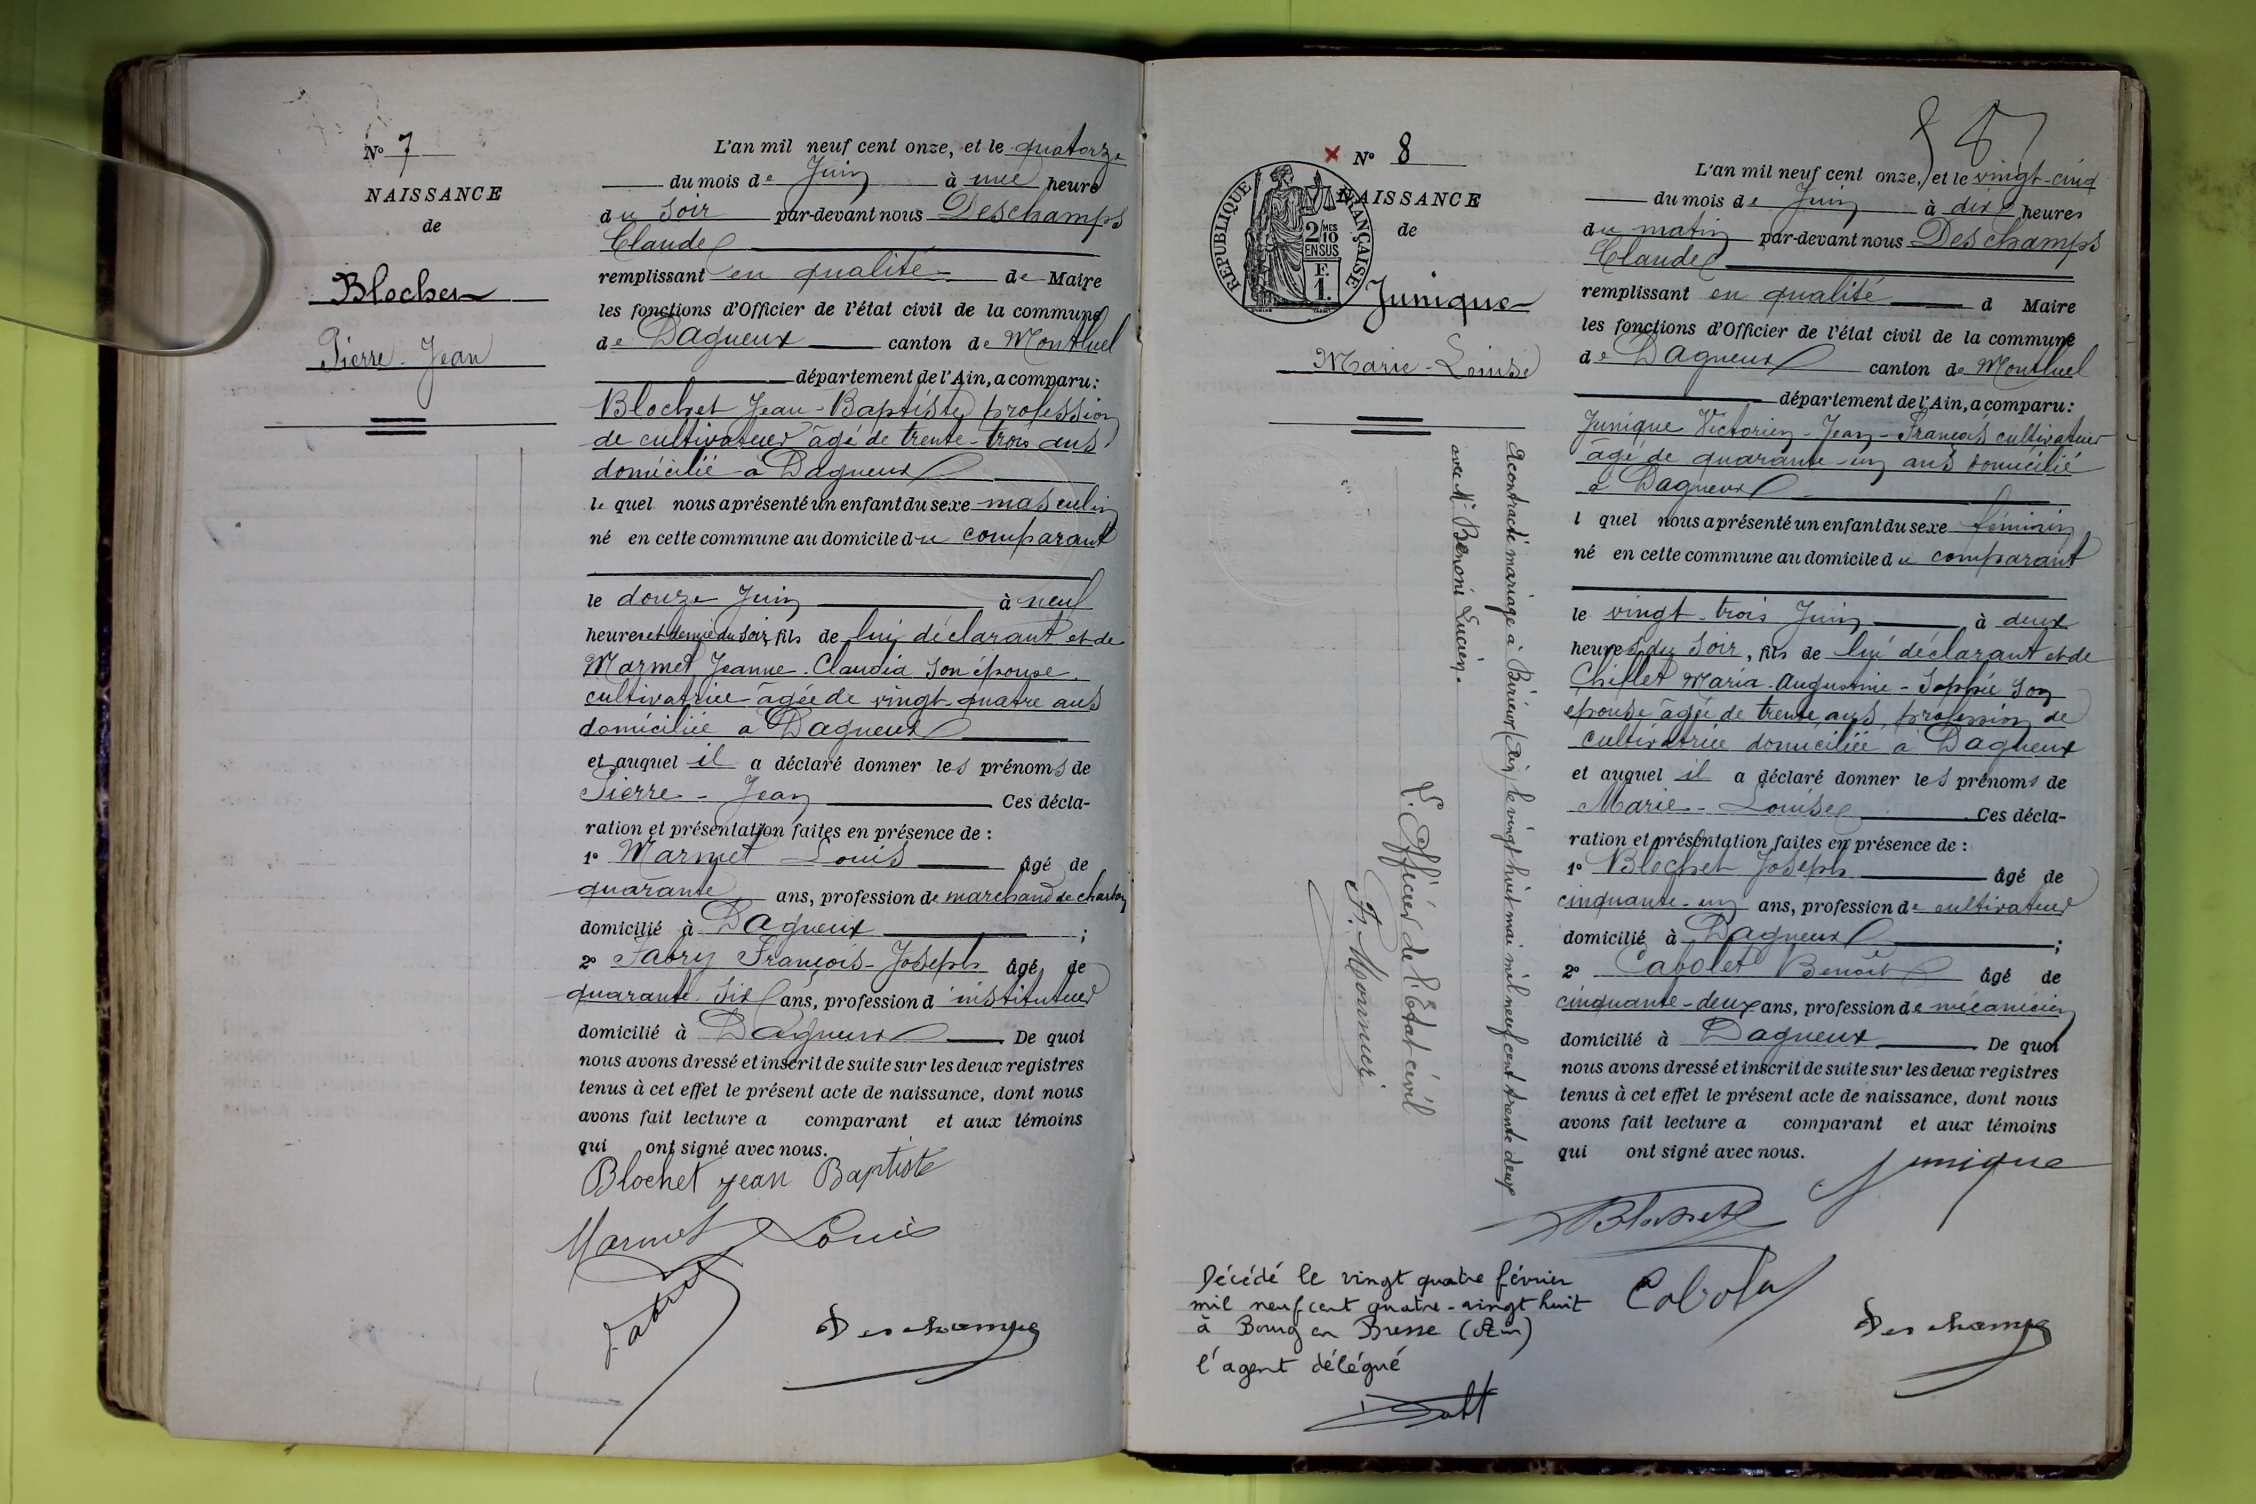 N° 7
NAISSANCE
de
Blochet
Pierre-Jean
L'an mil neuf cent onze, et le quatorze
du mois de Juin à une heure
du soir par-devant nous Deschamps
Claude
remplissant en qualité de Maire
les fonctions d'Officier de l'état civil de la commune
de Dagneux canton de Montluel
département de l'Ain, a comparu:
Blochet Jean-Baptiste profession
de cultivateur âgé de trente-trois ans
domicilié à Dagneux
le quel nous a présenté un enfant du sexe masculin
né en cette commune au domicile du comparant
le douze Juin à neuf
heures et demie du soir, fils de lui déclarant et de
Marmet Jeanne-Claudia son épouse
cultivatrice âgée de vingt-quatre ans
domiciliée à Dagneux
et auquel il a déclaré donner les prénoms de
Pierre-Jean Ces décla-
ration et présentation faites en présence de :
1° Marmet Louis âgé de
quarante ans, profession de marchand de charbon
domicilié à Dagneux ;
2° Fabry François-Joseph âgé de
quarante-six ans, profession d'instituteur
domicilié à Dagneux De quoi
nous avons dressé et inscrit de suite sur les deux registres
tenus à cet effet le présent acte de naissance, dont nous
avons fait lecture a comparant et aux témoins
qui ont signé avec nous.
Blochet jean Baptiste
Marmet Louis
Fabry
Deschamps
87
N° 8
NAISSANCE
de
REPUBLIQUE FRANÇAISE
2/10 MES
EN SUS
F.
1.
Junique
Marie-Louise
A contracté mariage à Birieux (Ain) le vingt huit mai mil neuf cent trente deux
avec Mr Benoni Lucien.
L'Officier de l'Etat civil
F. Monnier
L'an mil neuf cent onze, et le vingt-cinq
du mois de Juin à dix heures
du matin par-devant nous Deschamps
Claude
remplissant en qualité d Maire
les fonctions d'Officier de l'état civil de la commune
de Dagneux canton de Montluel
département de l'Ain, a comparu:
Junique Victorien-Jean-François cultivateur
âgé de quarante-un ans domicilié
à Dagneux
l quel nous a présenté un enfant du sexe féminin
né en cette commune au domicile du comparant
le vingt-trois Juin à deux
heures du soir, fils de lui déclarant et de
Chillet Maria-Augustine-Sophie son
épouse âgée de trente ans, profession de
cultivatrice domiciliée à Dagneux
et auquel il a déclaré donner les prénoms de
Marie-Louise Ces décla-
ration et présentation faites en présence de :
1° Blochet Joseph âgé de
cinquante-un ans, profession de cultivateur
domicilié à Dagneux ;
2° Cabolet Benoît âgé de
cinquante-deux ans, profession de mécanicien
domicilié à Dagneux De quoi
nous avons dressé et inscrit de suite sur les deux registres
tenus à cet effet le présent acte de naissance, dont nous
avons fait lecture a comparant et aux témoins
qui ont signé avec nous.
Junique
Blochet
Cabolet
Deschamps
Décédé le vingt quatre février
mil neuf cent quatre-vingt huit
à Bourg en Bresse (Ain)
l'agent délégué